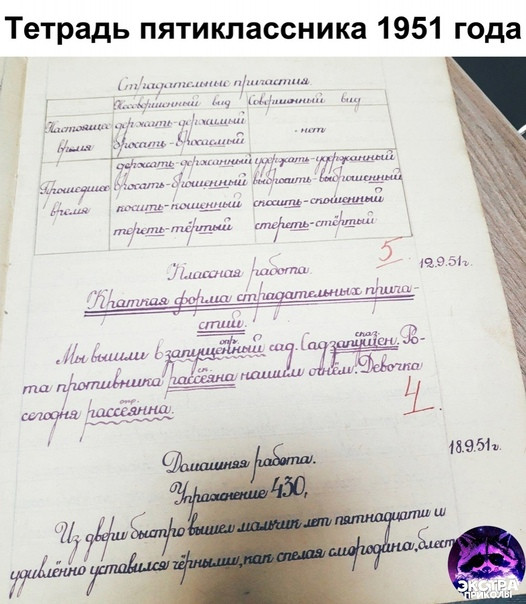 Тетрадь пятиклассника 1951 года
Страдательные причастия
Несовершенный вид Совершенный вид
Настоящее время держать-держимый нет
бросать-бросаемый
Прошедшее время держать-держанный удержать-удержанный
бросать-брошенный выбросить-выброшенный
косить-кошенный скосить-скошенный
тереть-тёртый стереть-стёртый
5
Классная работа. 12.9.51г.
Краткая форма страдательных прича-
стий.
опр. сказ.
Мы вышли в запущенный сад. Сад запущен. Ро-
ск.
та противника рассеяна нашим огнём. Девочка
опр.
сегодня рассеянна.
4.
Домашняя работа. 18.9.51г.
Упражнение 430,
Из двери быстро вышел мальчик лет пятнадцати и
удивлённо уставился чёрными, как спелая смородина, блест
ЭКСТРА
ПРИКОЛЫ